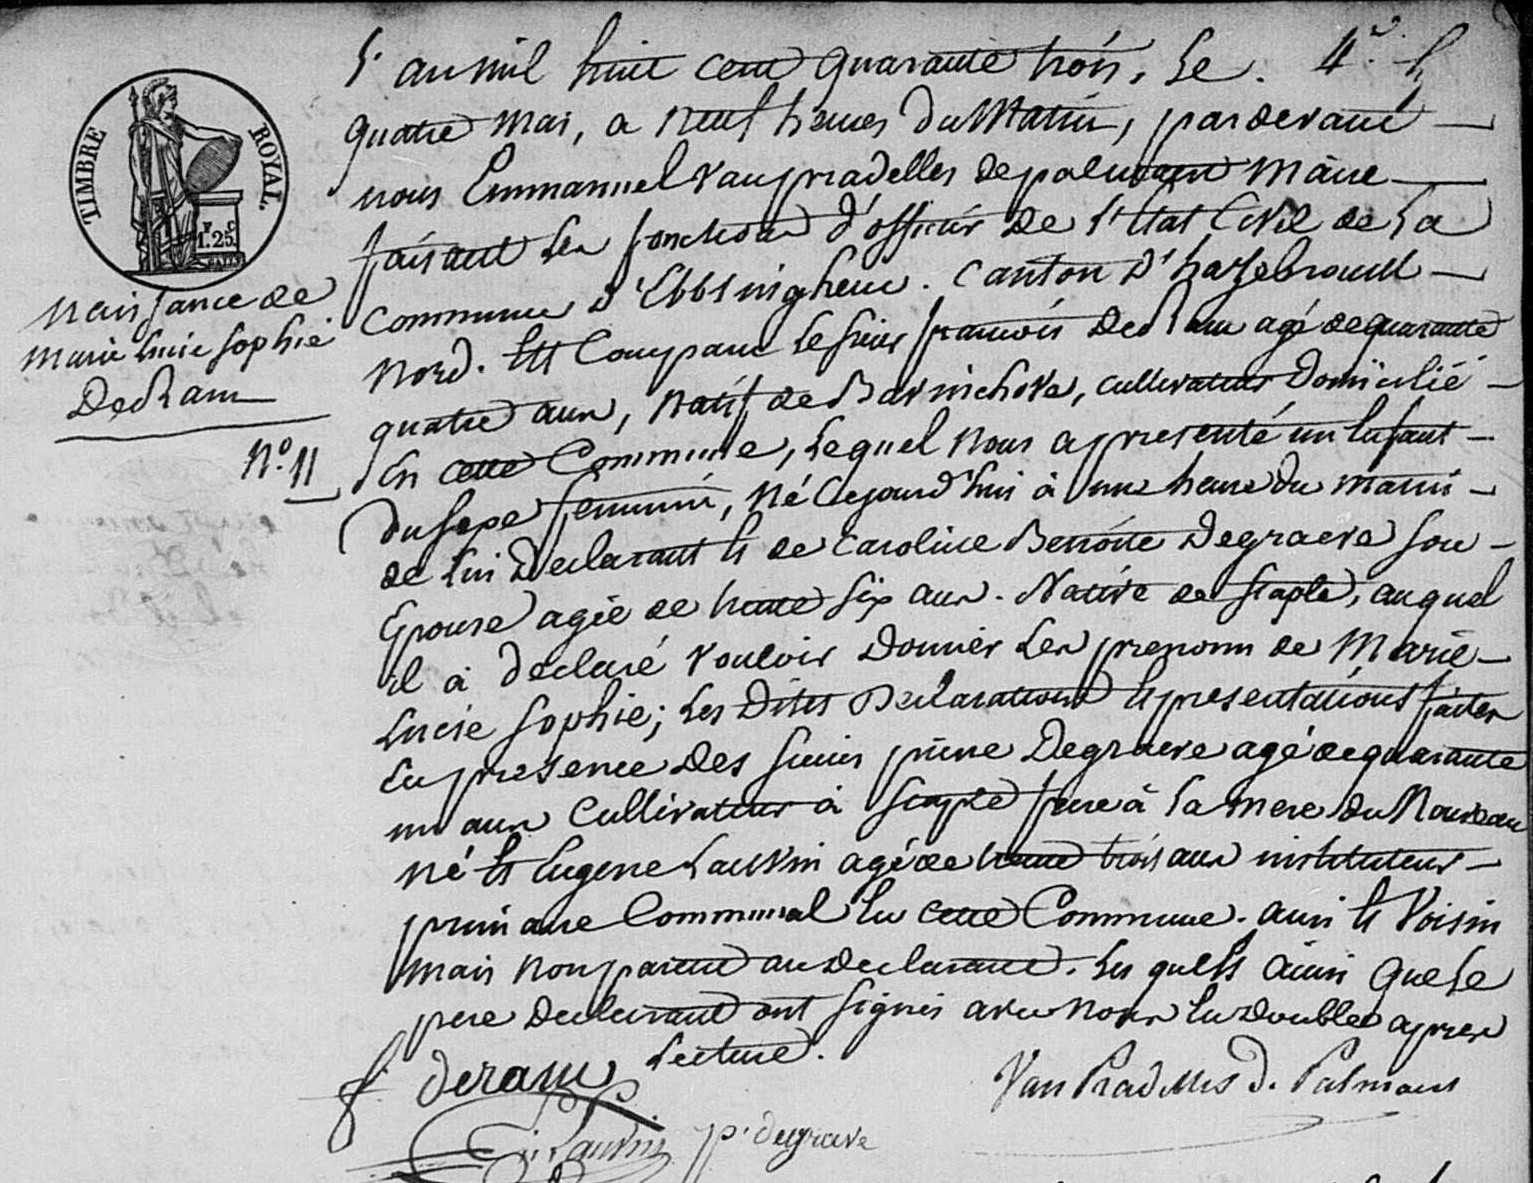 TIMBRE ROYAL.
F C
1.25
Naissance de
Marie Lucie Sophie
Dedram
N° 11
L'an mil huit cent quarante trois, Le
quatre Mai, a neuf heures du Matin, pardevant
nous Emmanuel Vanpradelles depalmaert Maire
faisant Les fonctions d'officier de L'Etat Civil de La
Commune d'Ebbsinghem. Canton d'hazebrouck
Nord. Est Comparu Le sieur françois Dedram agé de quarante
quatre ans, Natif de Bavinchove, cultivateur Domicilié
En cette Commune, Lequel Nous a presenté un Enfant
du sexe feminin, Né Cejourd'hui à une heure du matin
de Lui Declarant et de Caroline Benoite Degraeve son
Epouse agée de trente six ans. Native de Staple, auquel
il à declaré vouloir Donner Les prenoms de Marie
Lucie Sophie; Les Dites Declarations et presentations faites
En presence des sieurs pierre Degraeve agé de quarante
un ans Cultivateur à Staple frere à La mere du Nouveau
Né et Eugene Lauvin agé de trente trois ans instituteur
primaire Communal En cette Commune. ami et Voisin
mais Non parent au Declarant. Les quels ainsi que Le
pere Declarant ont signés avec nous En double apres
Lecture.
f. deram
Van Pradelles d. Palmaert
Lauvin
p. degraeve